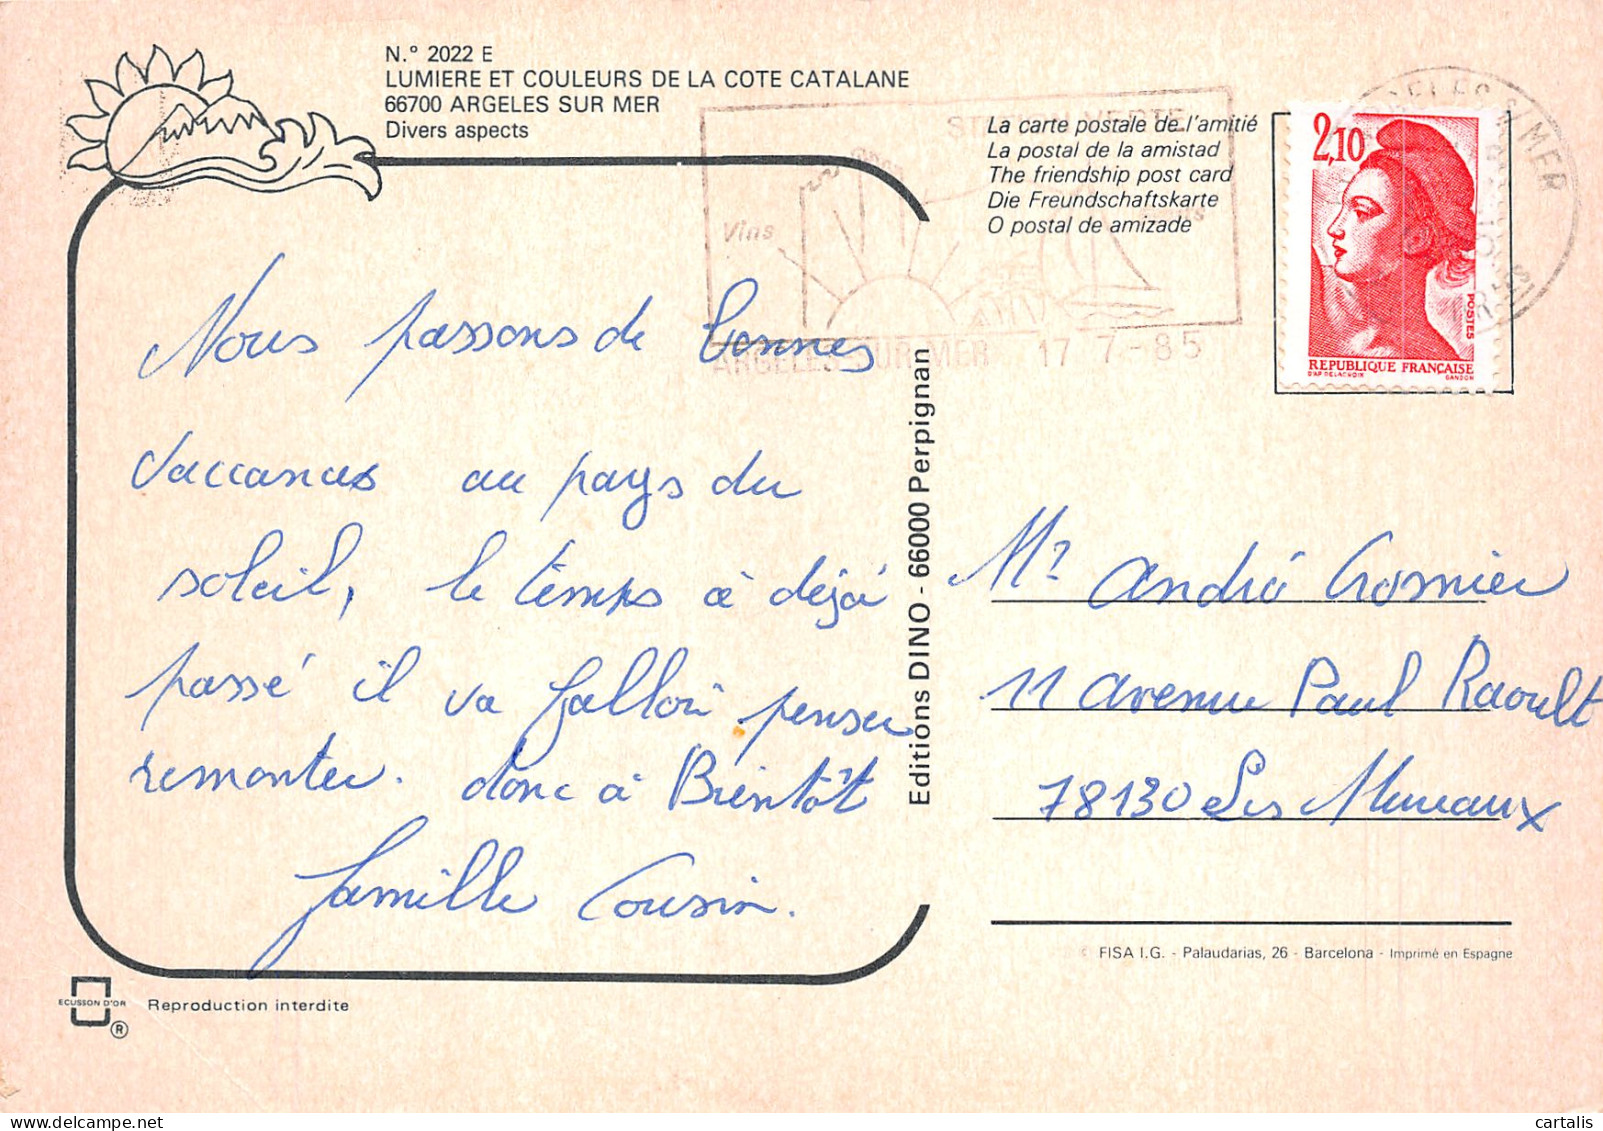 N.° 2022 E
LUMIERE ET COULEURS DE LA COTE CATALANE
66700 ARGELES SUR MER
Divers aspects
La carte postale de l'amitié
La postal de la amistad
The friendship post card
Die Freundschaftskarte
O postal de amizade
STATION VERTE
Vins
ARGELES SUR MER 17 7-85
2,10
POSTES
REPUBLIQUE FRANÇAISE
D'AP. DELACROIX GANDON
Nous passons de bonnes
vaccances au pays du
soleil, le temps à déjà
passé il va falloir penser
remonter. donc à Bientôt
famille Cousin.
Editions DINO - 66000 Perpignan
Mr André Cromier
11 avenue Paul Raoult
78130 Les Mureaux
© FISA I.G. - Palaudarias, 26 - Barcelona - Imprimé en Espagne
ECUSSON D'OR
®
Reproduction interdite
cartalis